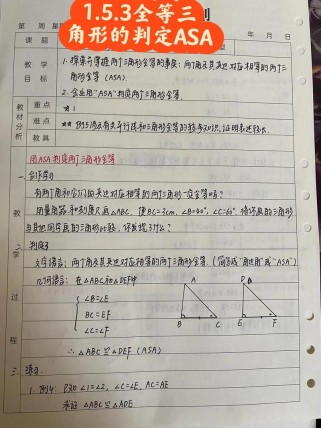 1.5.3全等三
角形的判定ASA
第 周 星期
年 月 日
课 题
教 学
目 标
1. 探索并掌握两个三角形全等的条件：两个角及其夹边对应相等的两个三
角形全等 (ASA).
2. 会应用"ASA"判定两个三角形全等.
教材分析
重点
难点
教具
例5涉及有关平行线和三角形全等的较多知识,证明表述较长.
用ASA判定两个三角形全等
一. 合作学习
有两个角和它们的夹边对应相等的两个三角形一定全等吗？
用量角器和刻度尺画△ABC, 使BC=3cm, ∠B=40°, ∠C=60°. 将你画的三角形
与其他同学画的三角形比较, 你发现了什么？
教学过程
二. 判定3
文字语言: 两个角及其夹边对应相等的两个三角形全等. (简写成"角边角"或"ASA")
几何语言: 在△ABC和△DEF中
∠B=∠E
BC=EF
∠C=∠F
∴ △ABC≌△DEF (ASA)
A
B
C
D
E
F
三. 练习
1. 例4: 已知 ∠1=∠2, ∠C=∠E, AC=AE
求证 △ABC≌△ADE